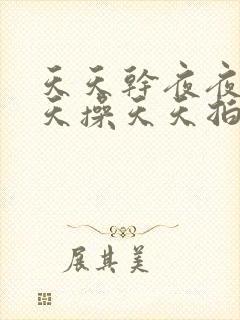 天天幹夜夜
天操天天拍
展其美